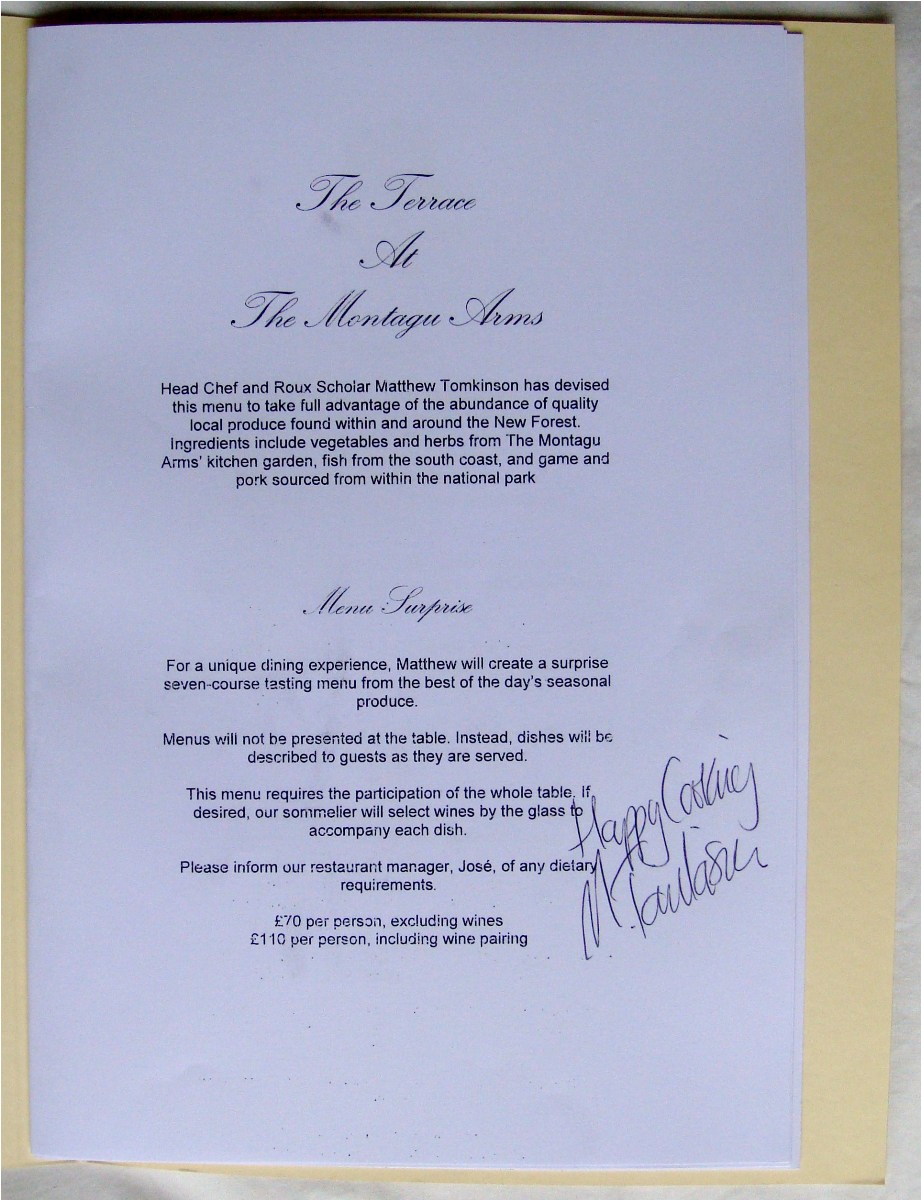 The Terrace
At
The Montagu Arms
Head Chef and Roux Scholar Matthew Tomkinson has devised
this menu to take full advantage of the abundance of quality
local produce found within and around the New Forest.
Ingredients include vegetables and herbs from The Montagu
Arms' kitchen garden, fish from the south coast, and game and
pork sourced from within the national park
Menu Surprise
For a unique dining experience, Matthew will create a surprise
seven-course tasting menu from the best of the day's seasonal
produce.
Menus will not be presented at the table. Instead, dishes will be
described to guests as they are served.
This menu requires the participation of the whole table. If
desired, our sommelier will select wines by the glass to
accompany each dish.
Please inform our restaurant manager, José, of any dietary
requirements.
£70 per person, excluding wines
£110 per person, including wine pairing
Happy Cooking
M. Tomkinson